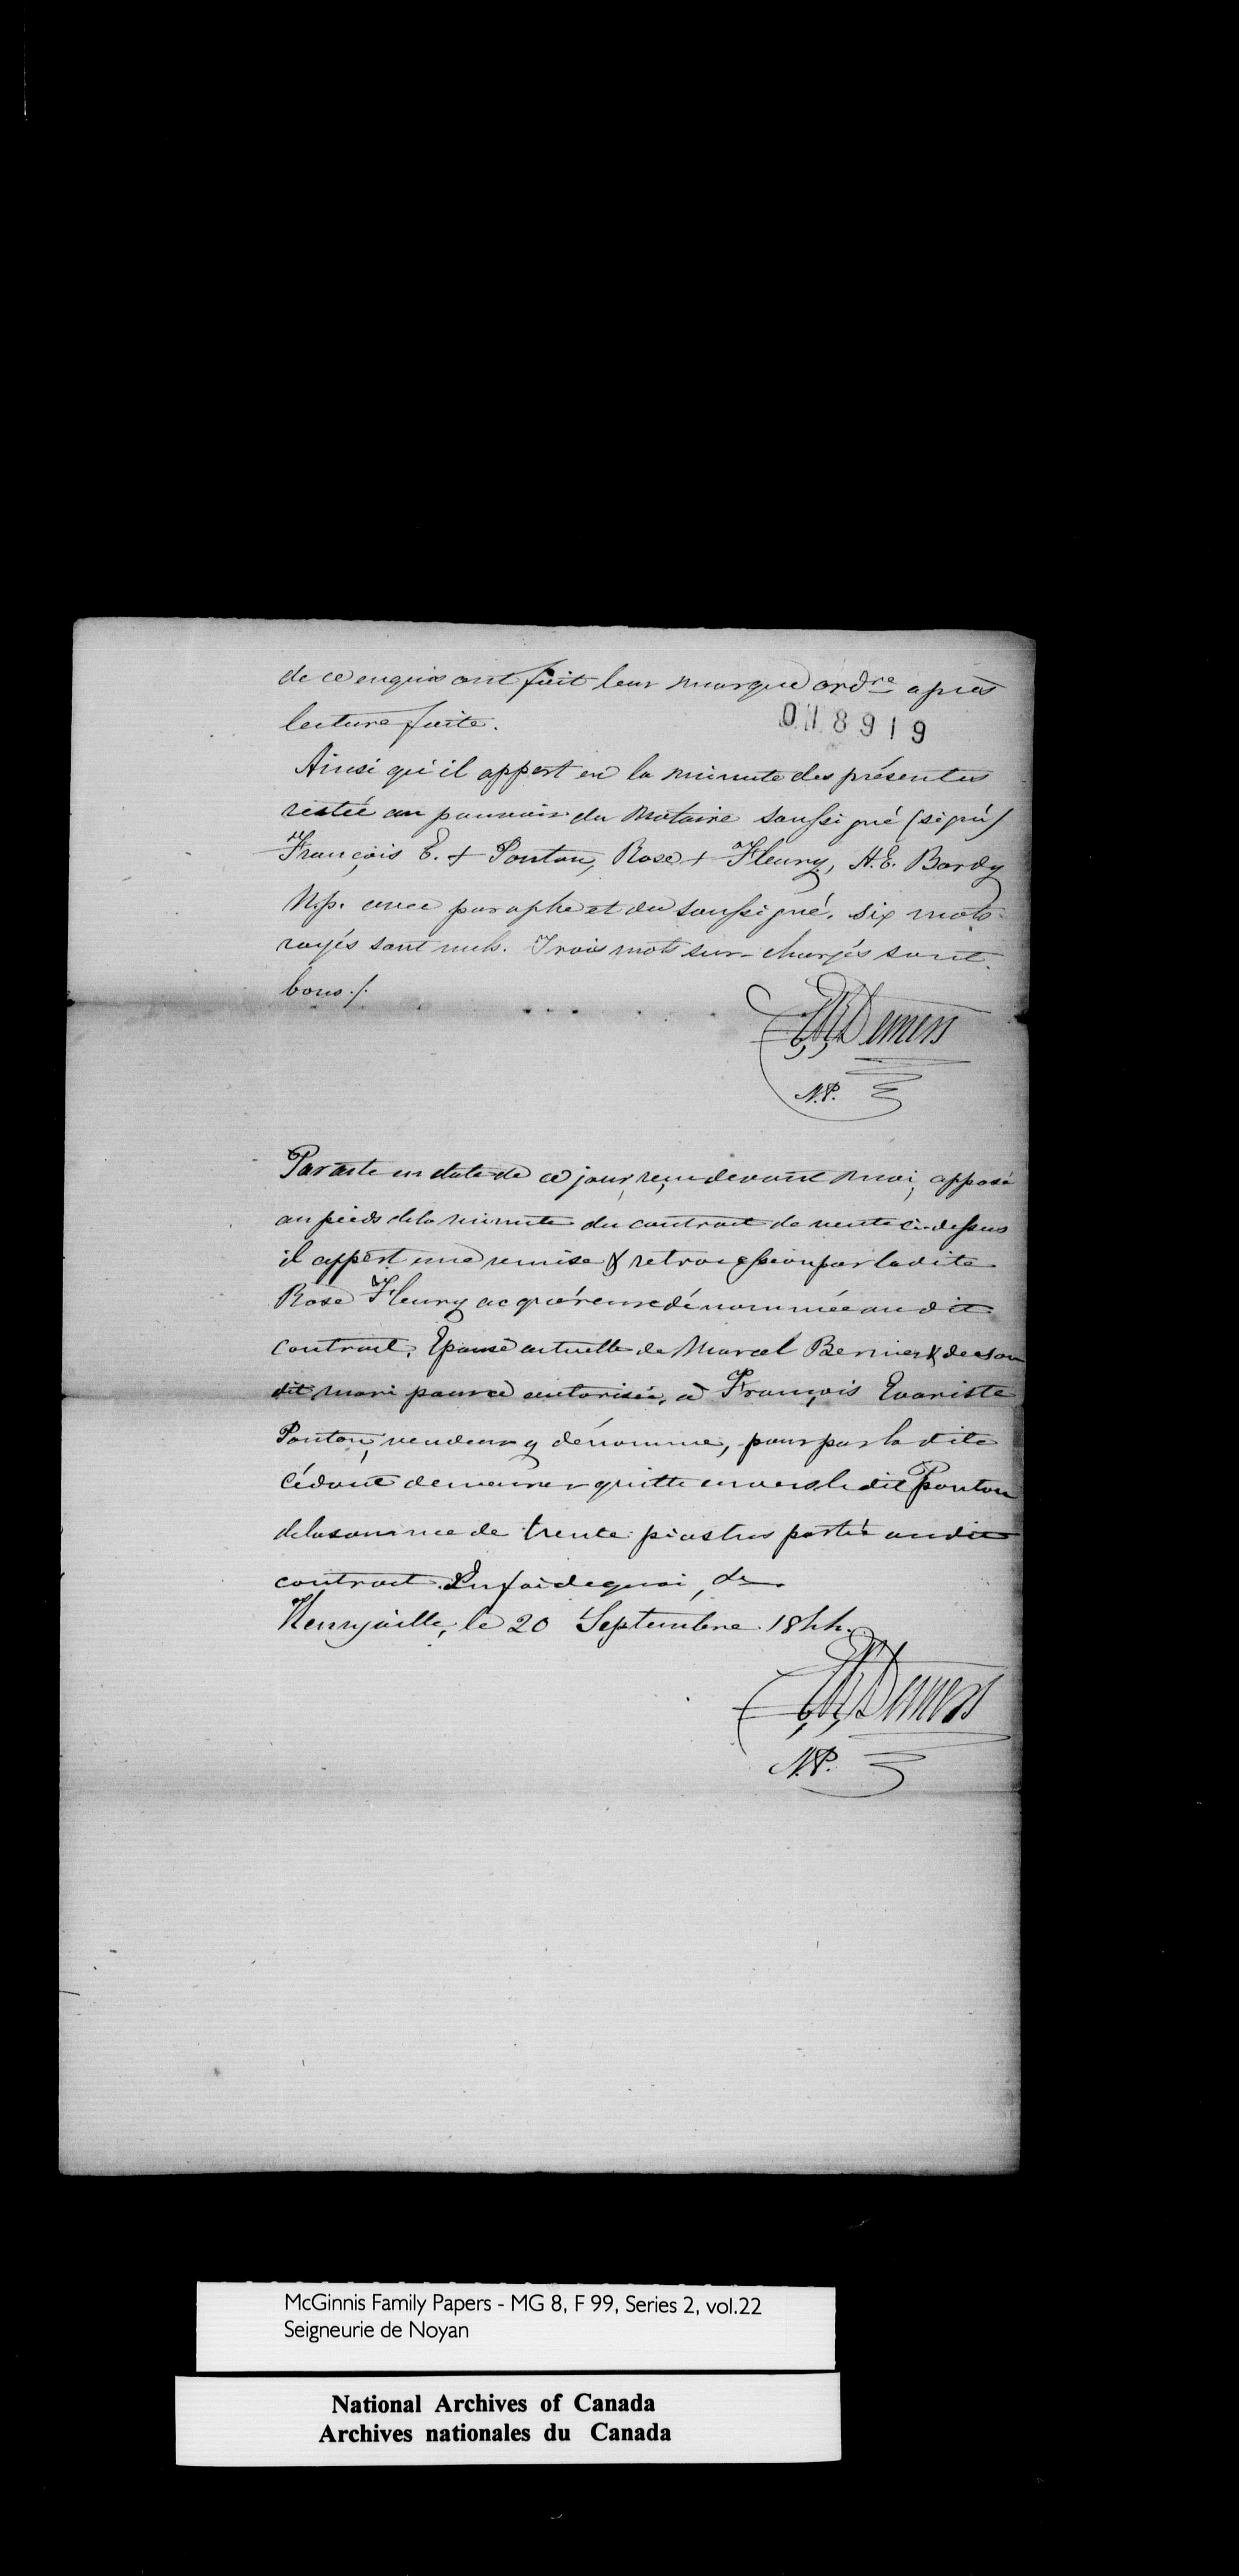 de ce enquis ont fait leur marque ord.re après
018919
lecture faite.
Ainsi qu'il appert en la minute des présentes
restée au pouvoir du Notaire soussigné (signé)
François E. + Ponton, Rose + Fleury, H.E. Bardy
N.p. avec paraphe et du soussigné. Six mots
rayés sont nuls. Trois mots sur-chargés sont
bons ./.
Demers
N.P.
Par acte en date de ce jour, reçu devant moi, apposé
au pieds de la minute du contrat de vente ci-dessus
il appert une remise & retrocession par la dite
Rose Fleury acquéreure dénommée au dit
contrat, Epouse actuelle de Marcel Bernier & de son
dit mari pour ce autorisée, à François Evariste
Ponton, vendeur y dénommé, pour par la dite
Cédante demeurer quitte envers le dit Ponton
de la somme de trente piastres portée au dit
contrat. En foi de quoi, &c.
Henryville, le 20 Septembre 1844.
Demers
N.P.
McGinnis Family Papers - MG 8, F 99, Series 2, vol.22
Seigneurie de Noyan
National Archives of Canada
Archives nationales du Canada